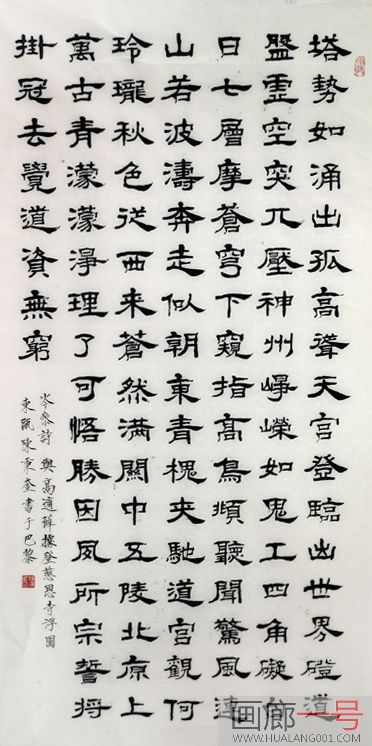 塔勢如涌出孤高聳天宮登臨出世界磴道
盤虛空突兀壓神州崢嶸如鬼工四角礙白
日七層摩蒼穹下窺指高鳥頫聽聞驚風連
山若波濤奔走似朝東青槐夾馳道宮觀何
玲瓏秋色從西来蒼然滿關中五陵北原上
萬古青濛濛淨理了可悟勝因夙所宗誓將
掛冠去覺道資無窮
岑參詩 與高適薛據登慈恩寺浮圖
東甌陳秉奎書于巴黎
画廊一号
WWW.HUALANG001.COM